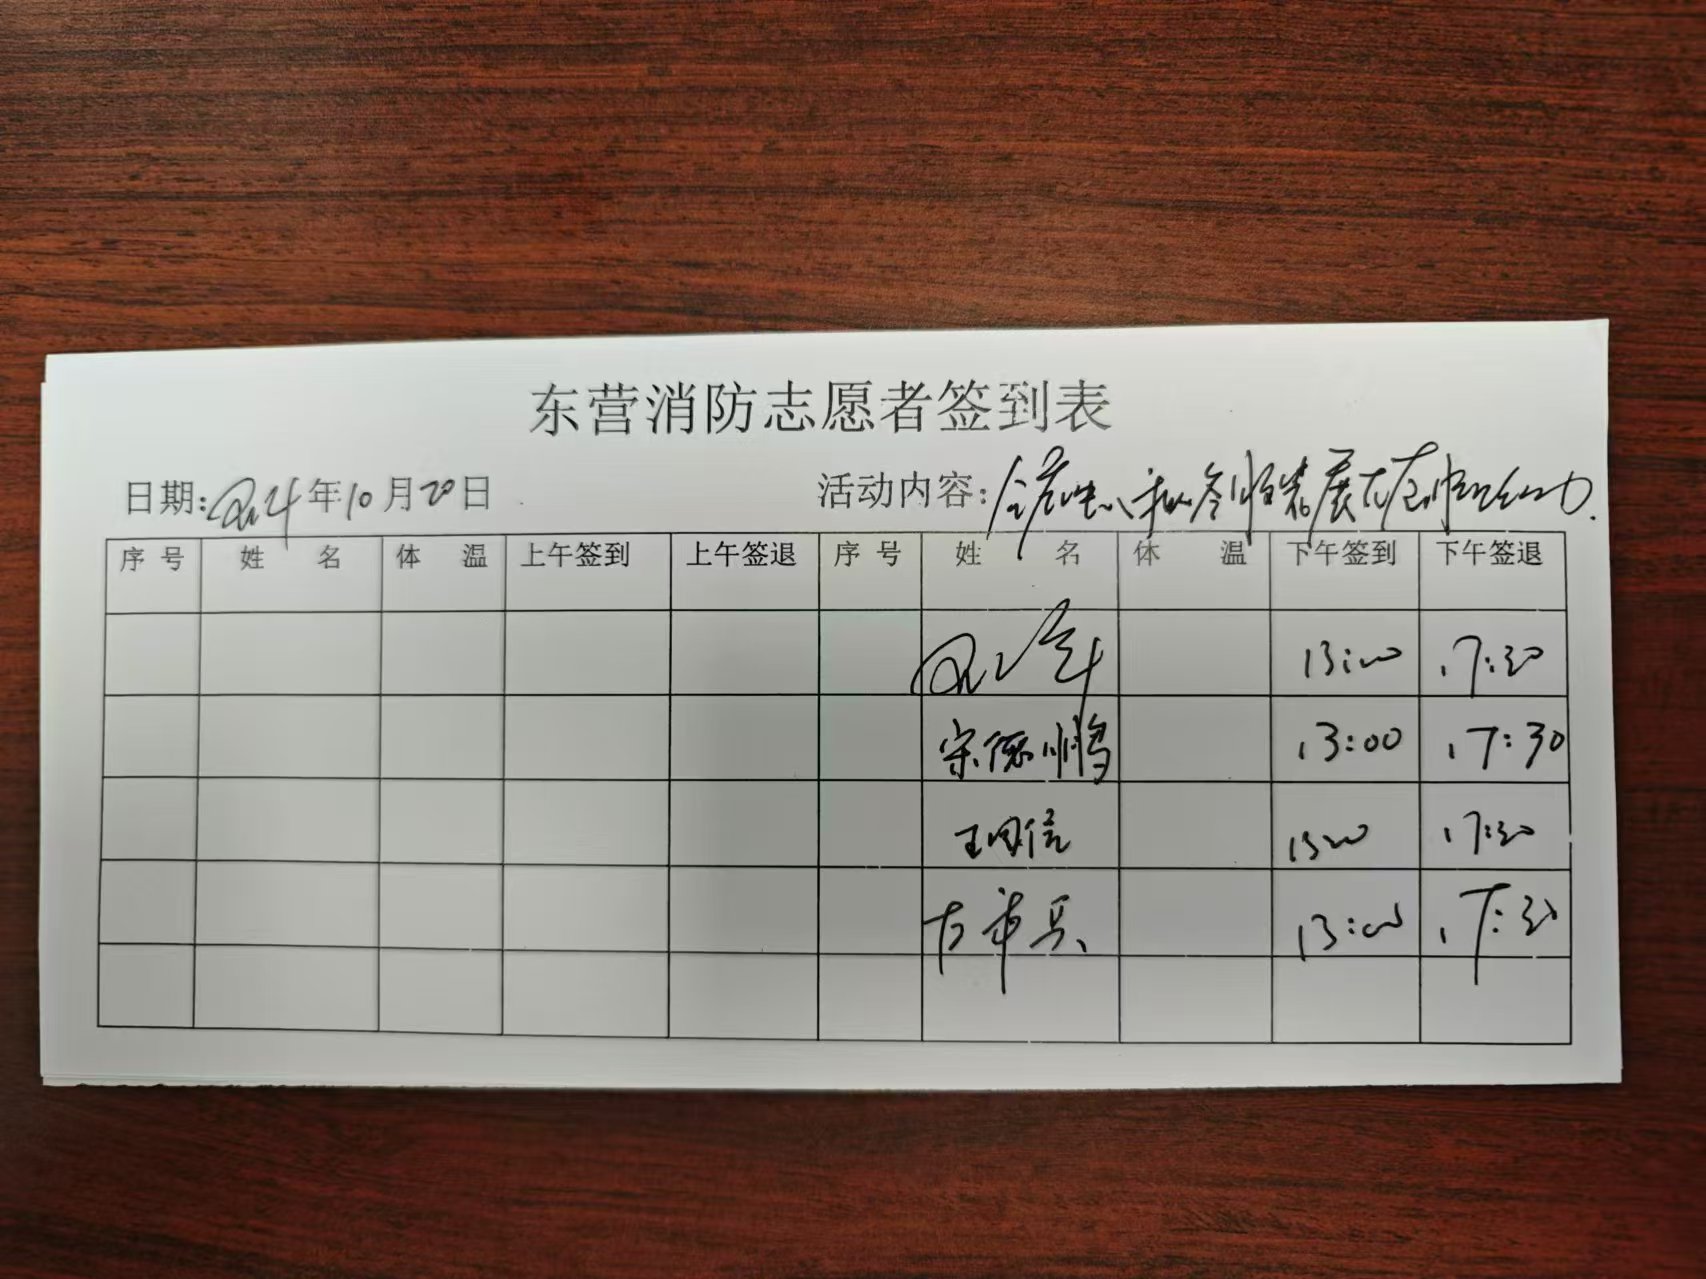 东营消防志愿者签到表
日期:2024年10月20日 活动内容:
序号 姓名 体温 上午签到 上午签退 序号 姓名 体温 下午签到 下午签退
13:00 17:30
宋德鹏 13:00 17:30
王同信 1300 17:30
13:00 17:30